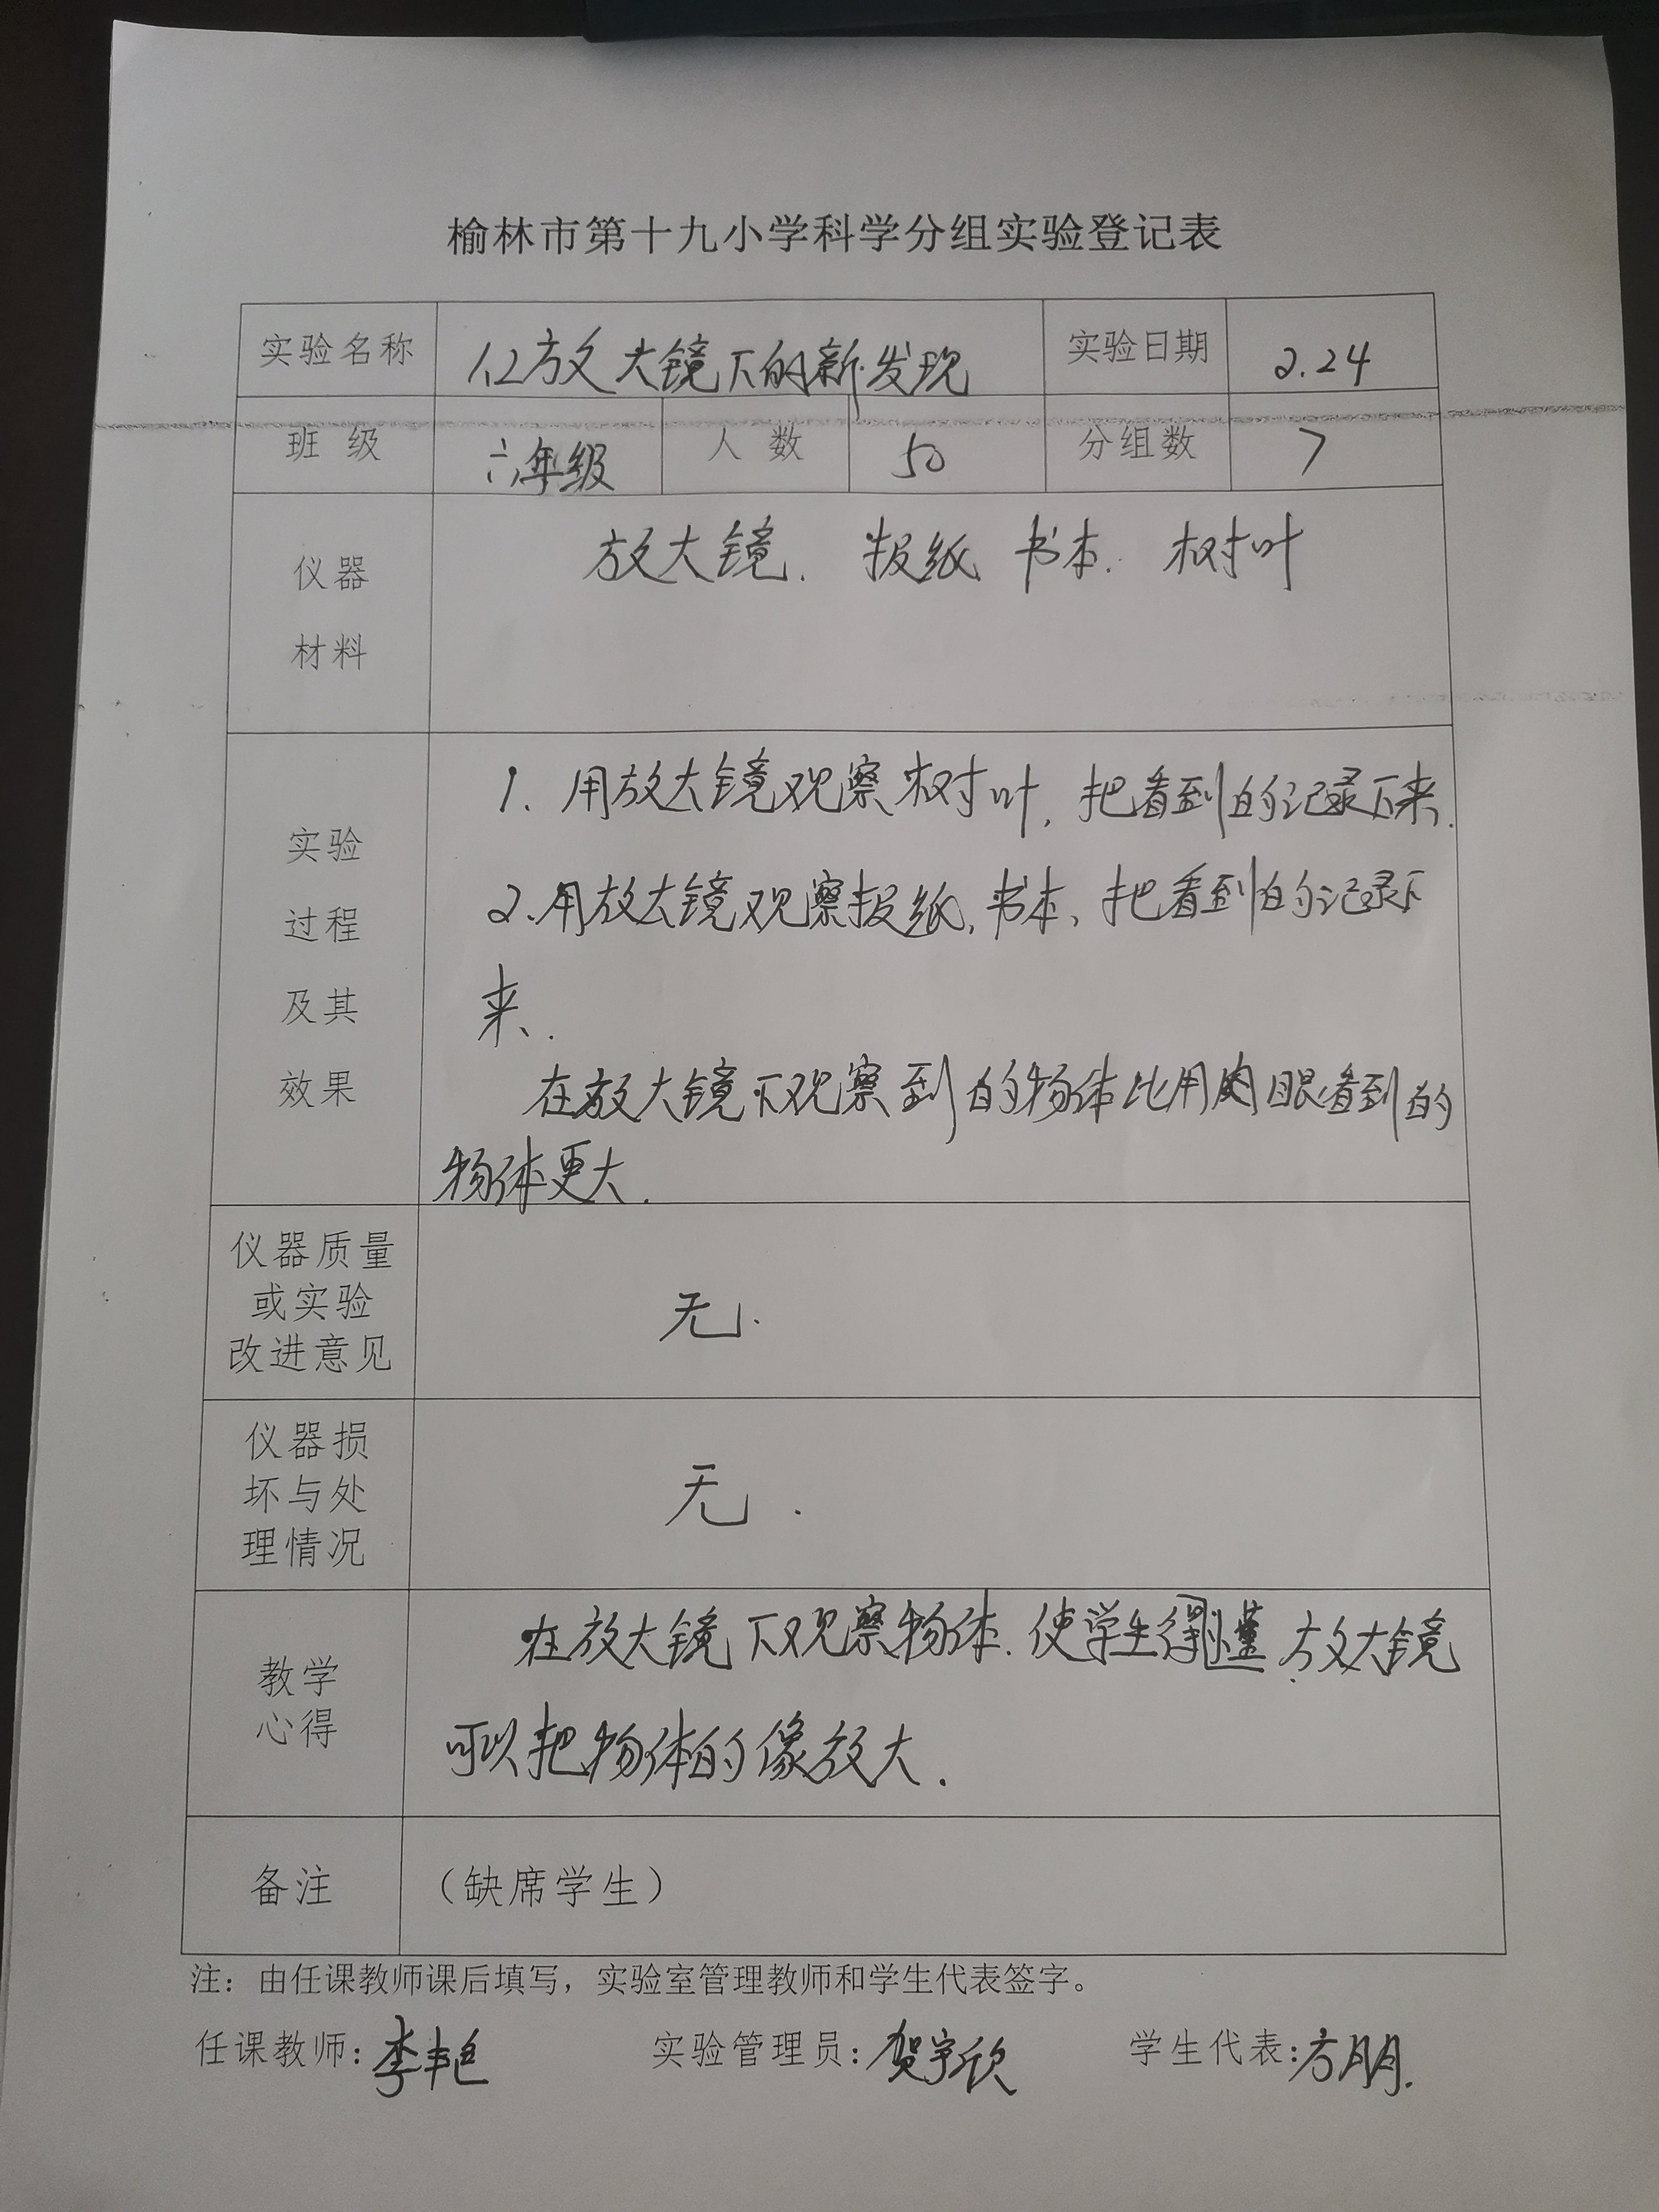 榆林市第十九小学科学分组实验登记表
实验名称 1.2放大镜下的新发现 实验日期 2.24
班 级 六年级 人 数 50 分组数 7
仪器 放大镜. 报纸 书本. 树叶
材料
实验 1、用放大镜观察树叶, 把看到的记录下来.
过程 2.用放大镜观察报纸, 书本, 把看到的记录下
及其 来.
效果 在放大镜下观察到的物体比用肉眼看到的
物体更大.
仪器质量
或实验 无.
改进意见
仪器损
坏与处 无.
理情况
教学 在放大镜下观察物体. 使学生 放大镜
心得 可以把物体的像放大.
备注 （缺席学生）
注：由任课教师课后填写，实验室管理教师和学生代表签字。
任课教师: 李艳 实验管理员: 贺宇欣 学生代表: 方朋.